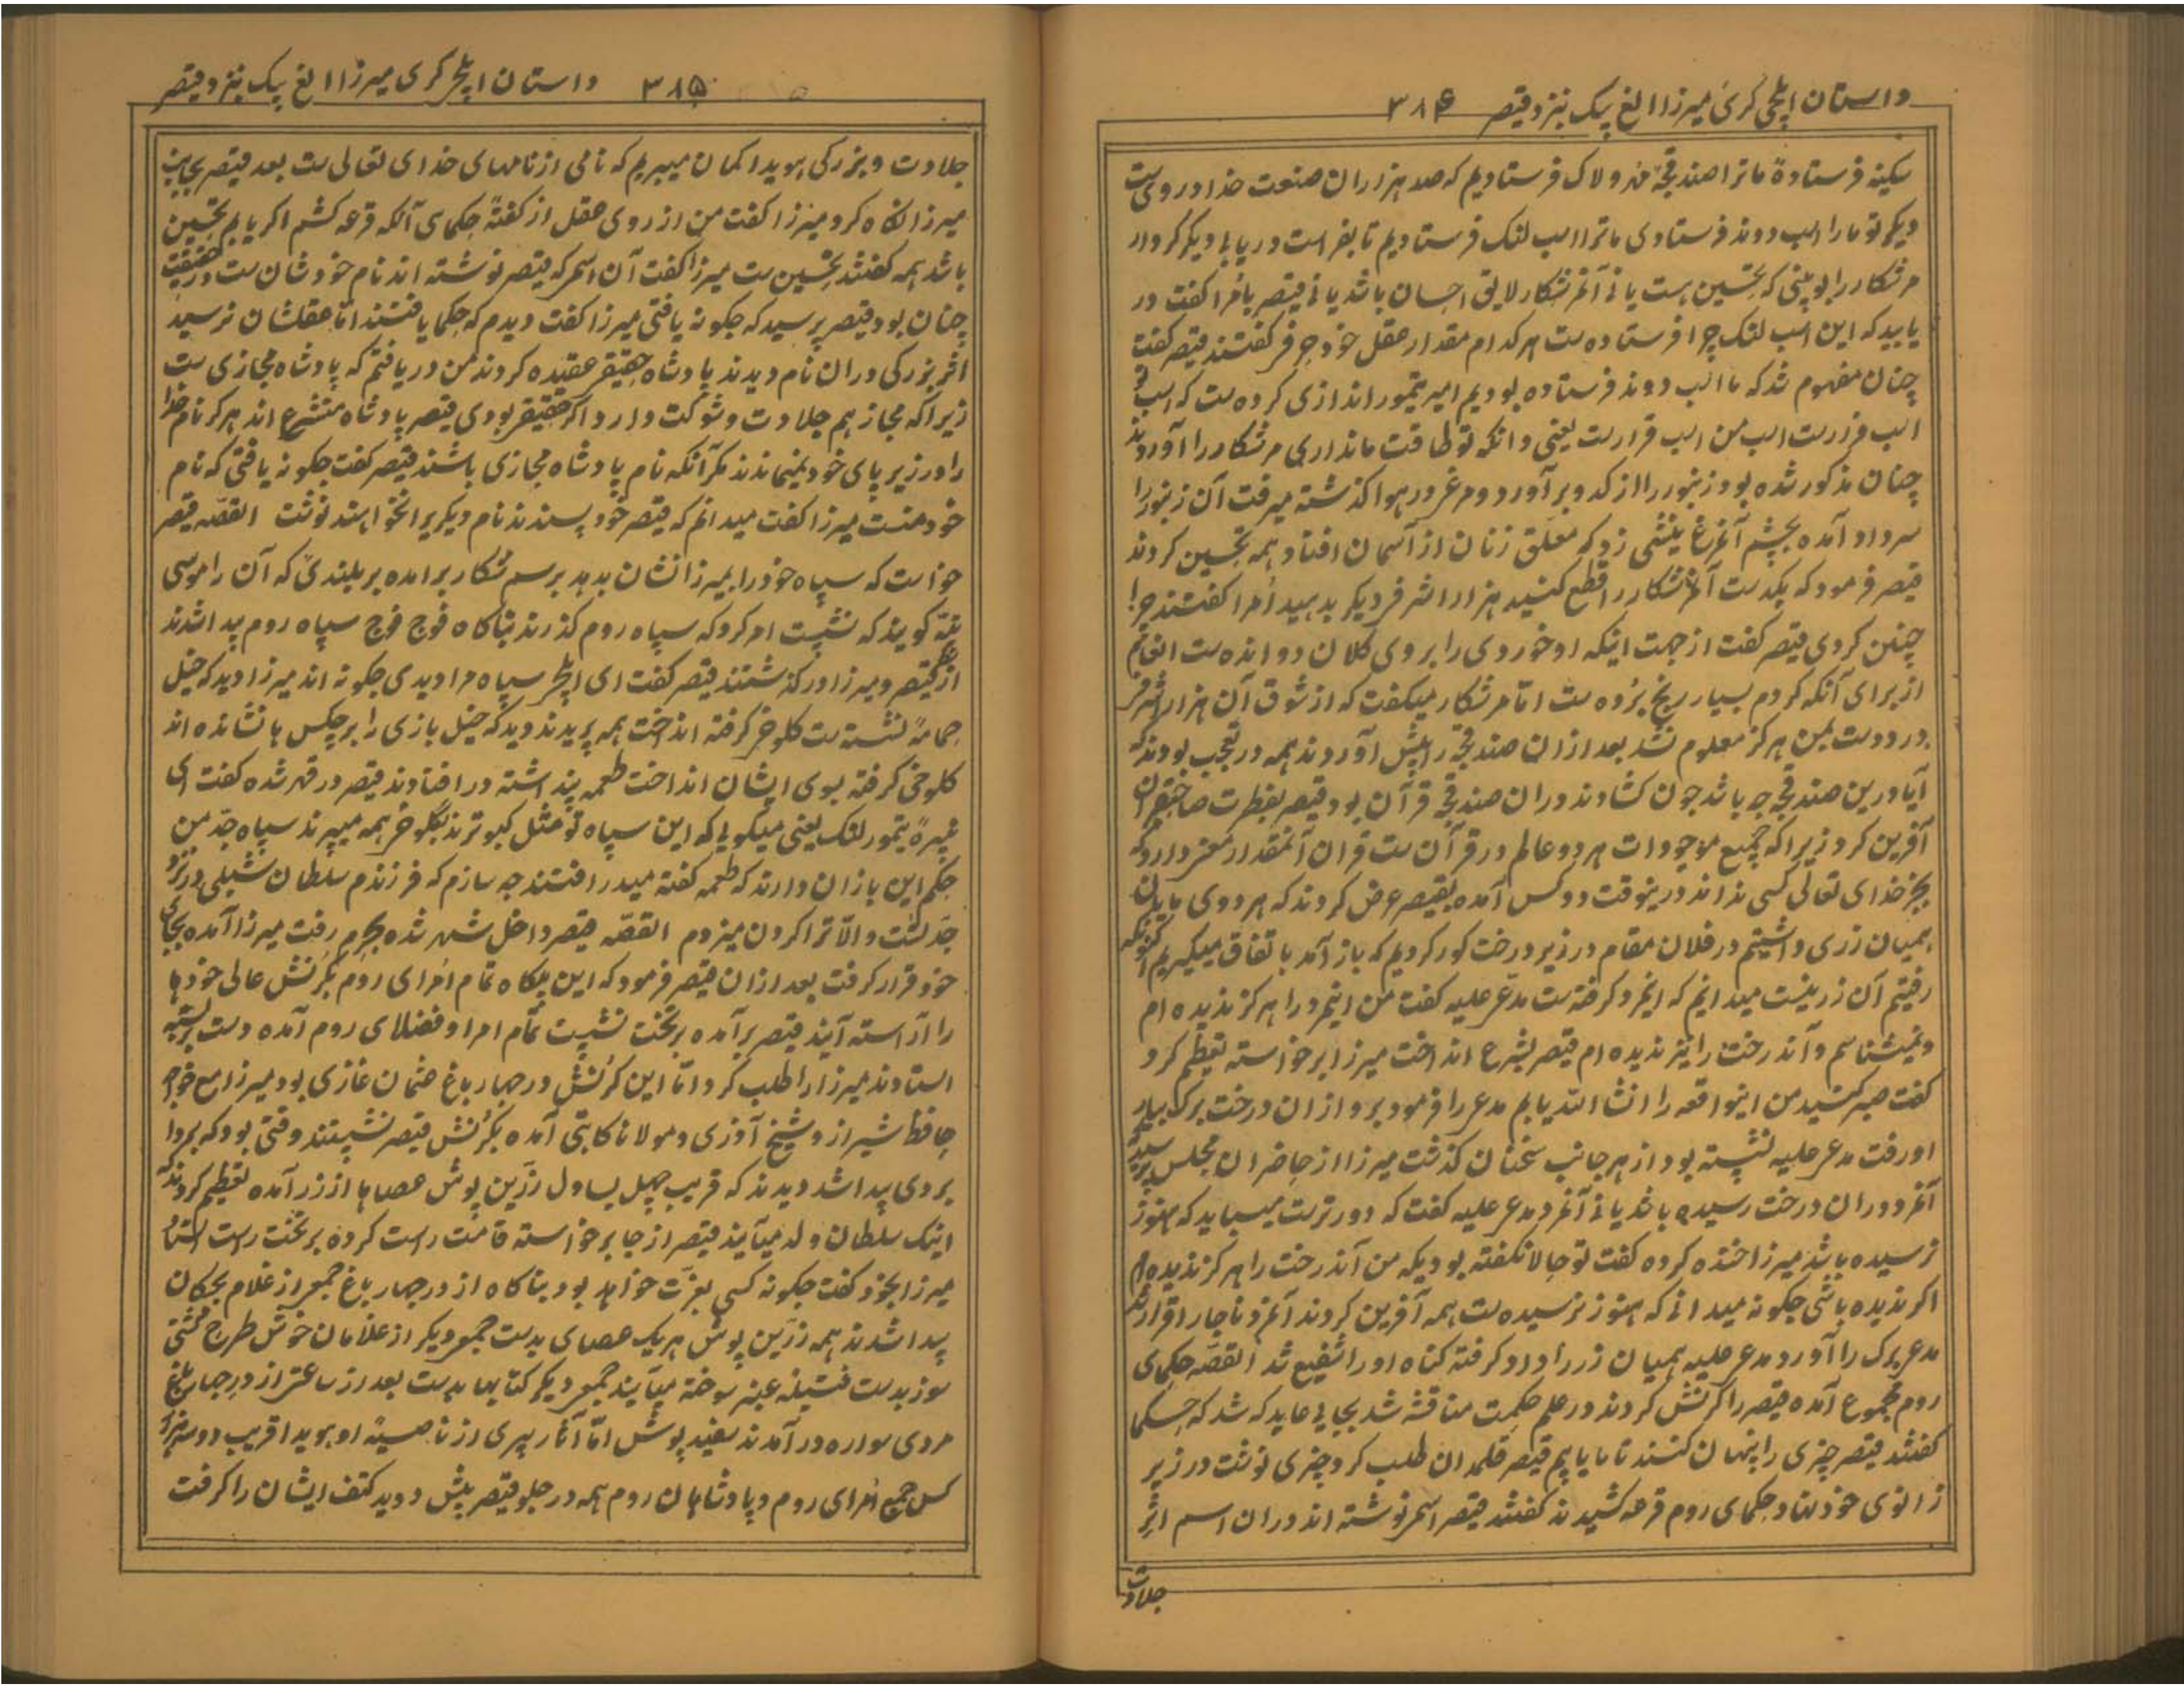 داستان ایلچی گری میرزا الغ بیک نزد قیصر ۳۸۴
سکینه فرستاده ما ترا صندقچه فرستادیم که صد هزاران صنعت خدا در وی است
دیگر تو ما را اسب دونده فرستادی ما ترا اسب لنگ فرستادیم تا بفراست دریابی دیگر کردار
مر شکار را بو بینی که تحسین است یا نی آنمر شکار لایق احسان باشد یا نی قیصر بامرا گفت در
یابید که این اسب لنگ چرا فرستاده است هر کدام مقدار عقل خود حرفی گفتند قیصر گفت
چنان مفهوم شد که ما اسب دونده فرستاده بودیم امیر تیمور اندازی کرده است که اسب تو
اسب فرار است اسب من اسب قرار است یعنی دانکه تو طاقت ما نداری مر شکار را آوردند
چنان مذکور شده بود زنبور را از کدو برآورد و مرغ در هوا گذشته میرفت آن زنبور را
سر داد آمده بچشم آنمرغ نیشی زد که معلق زنان از آسمان افتاد همه تحسین کردند
قیصر فرمود که یکدست آنمر شکار را قطع کنید هزار اشرفی دیگر بدهید امرا گفتند چرا
چنین کردی قیصر گفت از جهت اینکه او خوردی را بروی کلان دوانده است انعام
از برای آنکه کردم بسیار رنج برده است اما مر شکار میگفت که از شوق آن هزار اشرفی
درد دست بمن هرگز معلوم نشد بعد از آن صندقچه را پیش آوردند همه در تعجب بودند که
آیا درین صندقچه چه باشد چون کشادند در آن صندقچه قرآن بود قیصر بفطرت صاحبقران
آفرین کرد زیرا که جمیع موجودات هر دو عالم در قرآن است قرآن آنمقدار معنی دارد که
بجز خدای تعالی کسی نداند درینوقت دو کس آمده بقیصر عرض کردند که هر دوی مایان
همیان زری داشتیم در فلان مقام در زیر درخت کور کردیم که باز آمد باتفاق میگیریم اکنونکه
رفتیم آن زر نیست میدانم که اینمرد گرفته است مدعی علیه گفت من اینمرد را هرگز ندیده ام
و نمیشناسم و آندرخت را نیز ندیده ام قیصر بشرع انداخت میرزا برخواسته تعظیم کرد
گفت صبر کنید من اینواقعه را انشاالله یابم مدعی را فرمود برو از آن درخت برگ بیار
او رفت مدعی علیه نشسته بود از هر جانب سخنان گذشت میرزا از حاضران مجلس پرسید
آنمرد در آن درخت رسیده باشد یا نی آنمرد مدعی علیه گفت که دورتر است میباید که هنوز
نرسیده باشد میرزا خنده کرده گفت تو حالا نگفته بودیکه من آندرخت را هرگز ندیده ام
اگر ندیده باشی چگونه میدانی که هنوز نرسیده است همه آفرین کردند آنمرد ناچار اقرار شد
مدعی برگ را آورد مدعی علیه همیان زر را داد گرفته گناه او را شفیع شد القصه حکمای
روم مجموع آمده قیصر را کرنش کردند در علم حکمت مناقشه شد بجایی عاید که شد که حکما
گفتند قیصر چیزی را پنهان کنند تا ما یابیم قیصر قلمدان طلب کرد چیزی نوشت در زیر
زانوی خود نهاد حکمای روم قرعه کشیدند گفتند قیصر اسمی نوشته اند در آن اسم اثر
جلادت
داستان ایلچی گری میرزا الغ بیک نزد قیصر ۳۸۵
جلادت و بزرگی هویدا گمان میبریم که نامی از نامهای خدای تعالی ست بعد قیصر بجانب
میرزا نگاه کرد میرزا گفت من از روی عقل از گفتۀ حکمای آنکه قرعه کشم اگر یابم تحسین
باشد همه گفتند تحسین ست میرزا گفت آن اسمی که قیصر نوشته اند نام خودشان ست در حقیقت
چنان بود قیصر پرسید که چگونه یافتی میرزا گفت دیدم که حکما یافتند اما عقلشان نرسید
اثر بزرگی در آن نام دیدند پادشاه حقیقی عقیده کردند من دریافتم که پادشاه مجازی ست
زیرا که مجاز هم جلادت و شوکت دارد اگر حقیقی بودی قیصر پادشاه متشرع اند هرگز نام خدا
را در زیر پای خود نمیماندند مگر آنکه نام پادشاه مجازی باشند قیصر گفت چگونه یافتی که نام
خود منست میرزا گفت میدانم که قیصر خودپسندند نام دیگریرا نخواهند نوشت القصه قیصر
خواست که سپاه خود را بمیرزا نشان بدهد برسم شکار برآمده بر بلندی که آن را موسی
تپه گویند که نشست امر کرد که سپاه روم گذرند بناگاه فوج فوج سپاه روم پیدا شدند
از نظر قیصر و میرزا در گذشتند قیصر گفت ای ایلچی سپاه مرا دیدی چگونه اند میرزا دید که خیل
حمامۀ نشسته ست کلوخی گرفته انداخت همه پریدند دید که خیل بازی را بر چکس ها نشانده اند
کلوخی گرفته بسوی ایشان انداخت طعمه پنداشته در افتادند قیصر در قهر شده گفت ای
نبیرۀ تیمور لنگ یعنی میگویی که این سپاه تو مثل کبوترند بکلوخی همه میپرند سپاه جد من
حکم این بازان دارند که طعمه گفته میدرافتند چه سازم که فرزندم سلطان شبلی در نزد
جد تست والا ترا گردن میزدم القصه قیصر داخل شهر شده بحرم رفت میرزا آمده بجای
خود قرار گرفت بعد از آن قیصر فرمود که این پگاه تمام امرای روم بکرنش عالی خودها
را آراسته آیند قیصر برآمده بر تخت نشست تمام امرا و فضلای روم آمده دست بسته
استادند میرزا را طلب کرد اما این کرنش در چهارباغ عثمان غازی بود میرزا مع خواجه
حافظ شیراز و شیخ آذری و مولانا کاتبی آمده بکرنش قیصر نشستند وقتی بود که بروا
بردی پیدا شد دیدند که قریب چهل یساول زرین پوش عصاها از زر آمده تعظیم کردند که
اینک سلطان ولد میآیند قیصر از جا برخواسته قامت راست کرده بر تخت راست استاد
میرزا بخود گفت چگونه کسی بعزت خواهد بود بناگاه از در چهارباغ جمعی از غلام بچگان
پیدا شدند همه زرین پوش هریک عصای بدست جمعی دیگر از غلامان خوش طرح مشکی
سوز بدست فتیله عنبر سوخته میآیند جمعی دیگر کتابها بدست بعد از ساعتی از در چهارباغ
مردی سواره درآمدند سفید پوش اما آثار پیری از ناصیۀ او هویدا قریب دو سه هزار
کس جمیع امرای روم و پادشاهان روم همه در جلو قیصر پیش دوید کتف ایشان را گرفت